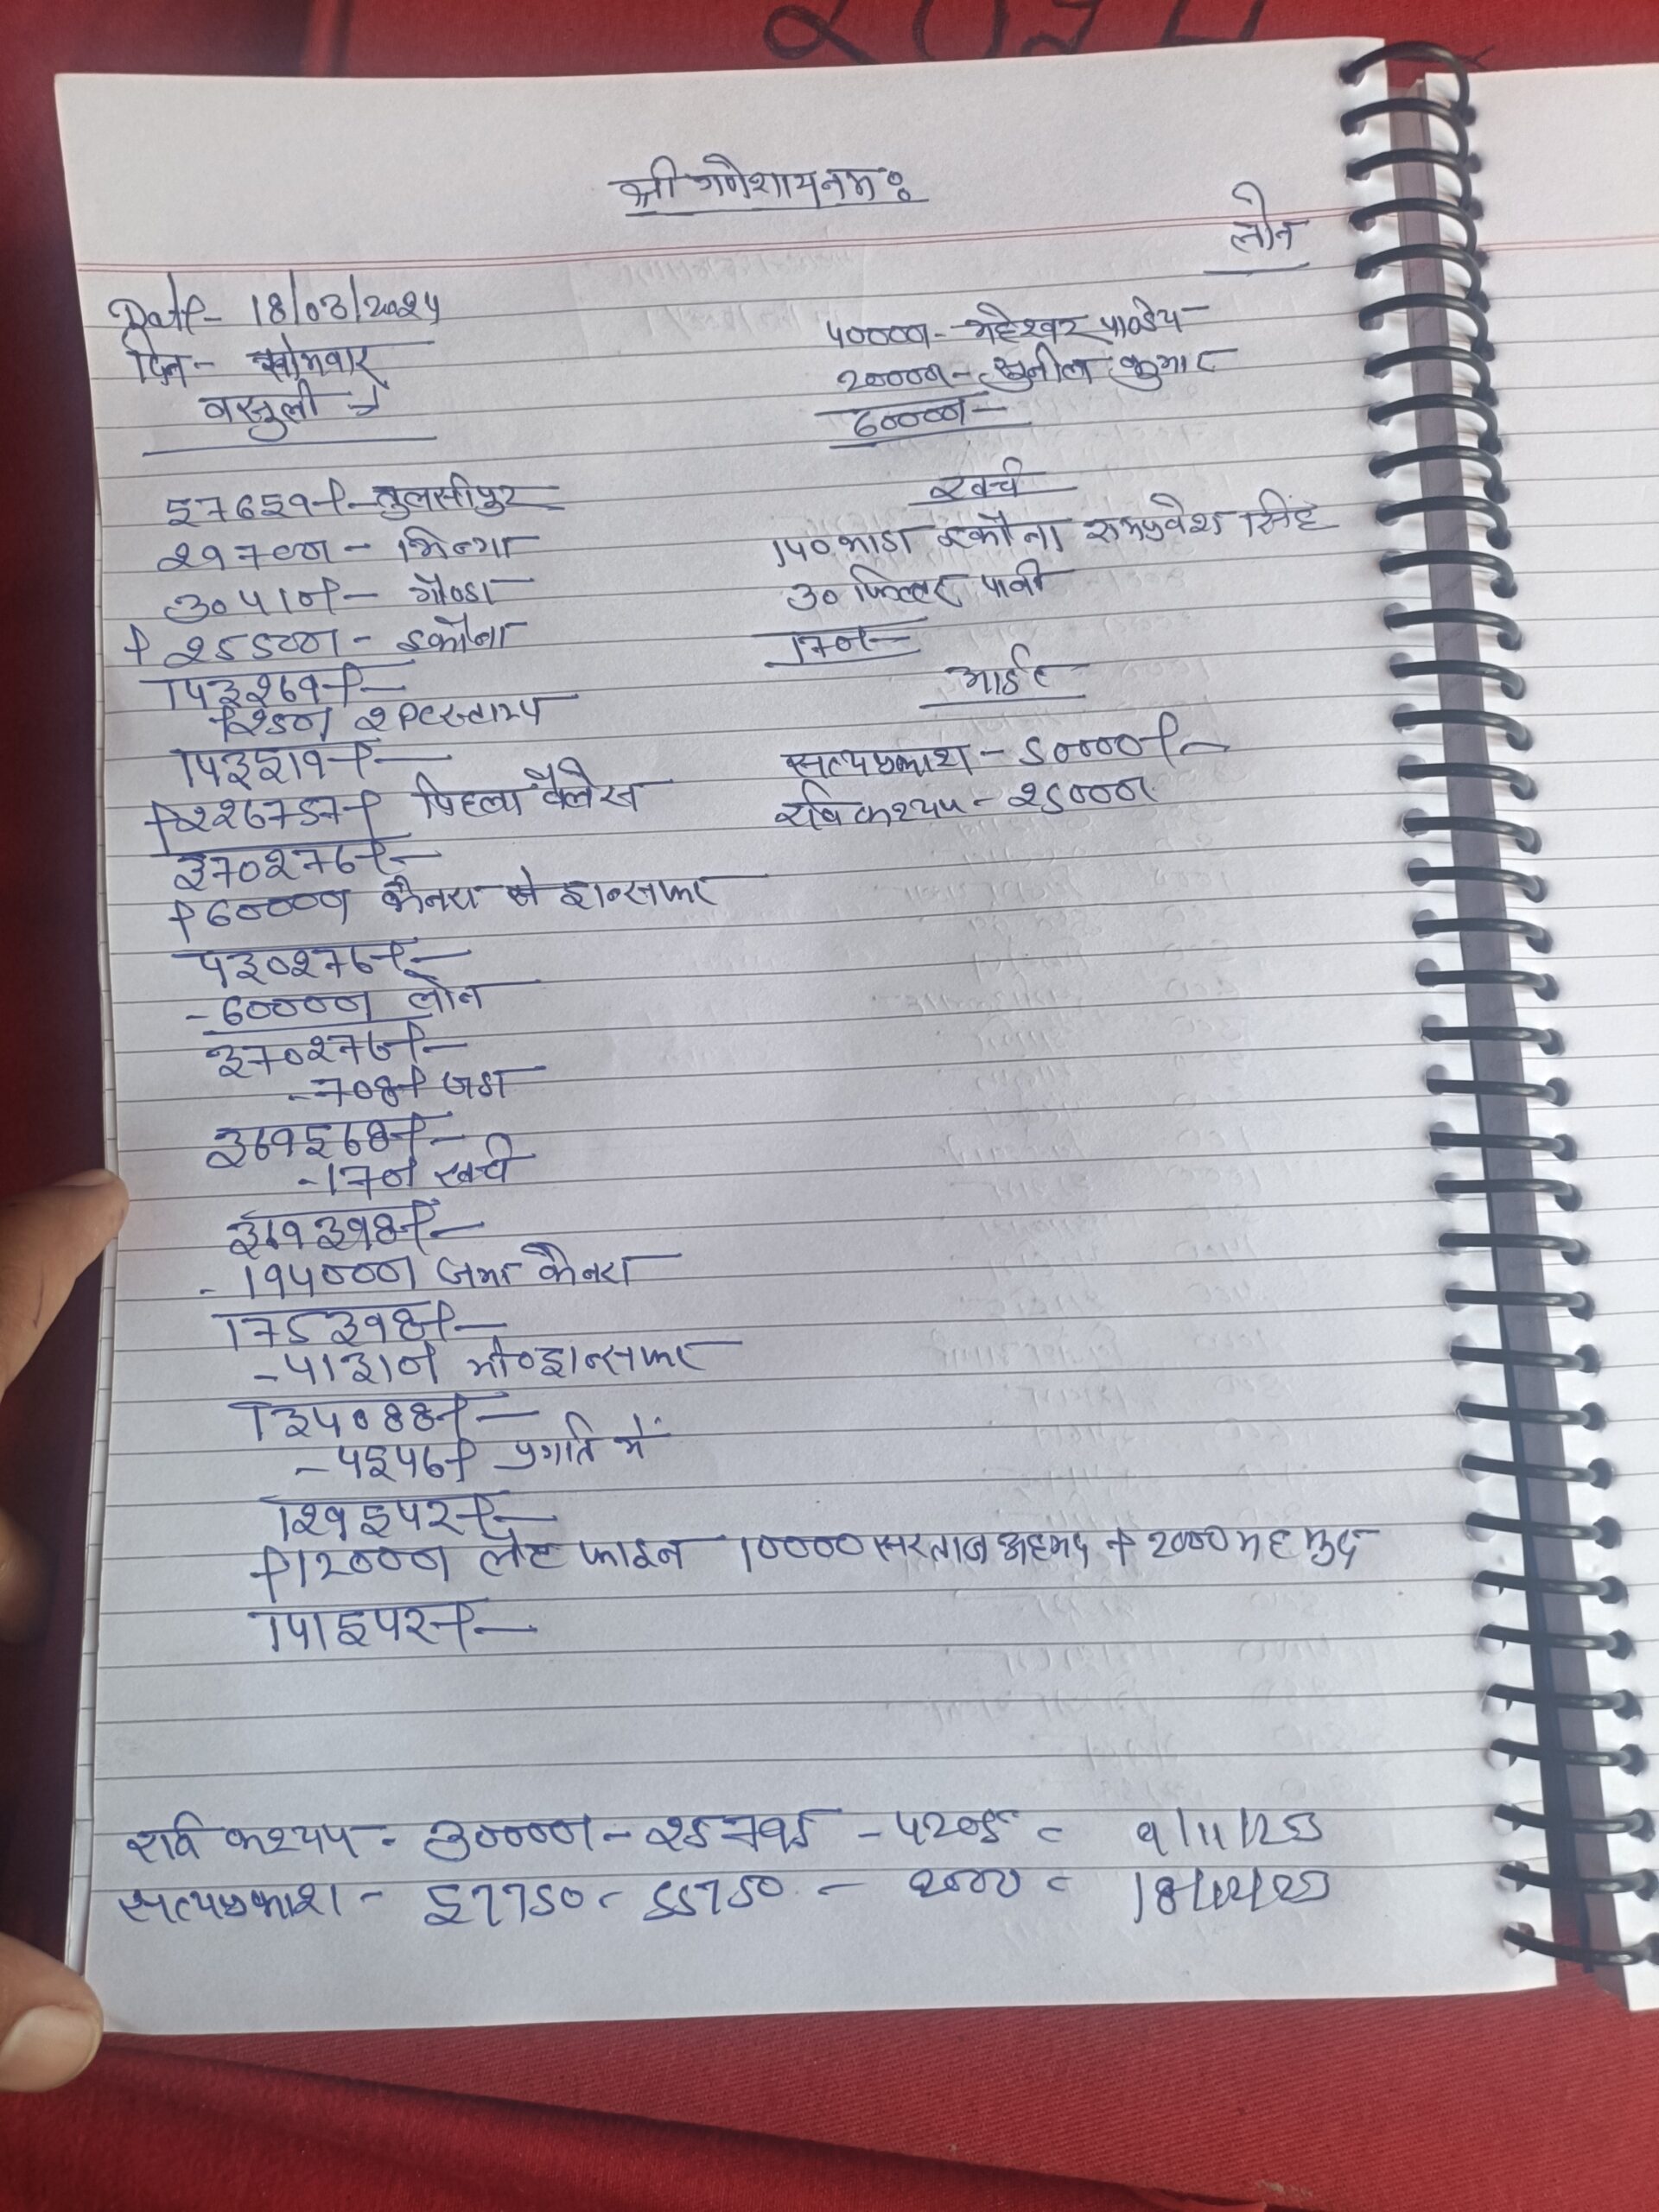 2024
श्री गणेशायनमः
लोन
Date- 18/03/2024
दिन- सोमवार
वसुली →
57659/- तुलसीपुर
29700/- भिन्गा
30410/- गोण्डा
+ 25500/- इकौना
143269/-
+250/ 2 P टस्टाम्प
143519/-
+226757/ पिछला बैलेंस
370276/-
+60000/ कैनरा से ट्रान्सफर
430276/-
-60000/ लोन
370276/-
-708/ जडा
369568/-
-170/ खर्च
369398/-
- 194000/ जमा कैनरा
175398/-
-41310/ गो०ट्रान्सफर
134088/-
-4546/ प्रगति में
129542/-
+12000/ लेट फाइन 10000 सरताज अहमद + 2000 महमुद
141542/-
40000/- महेश्वर पाण्डेय
20000/- सुनील कुमार
60000/-
खर्च
140 भाडा इकौना रामप्रवेश सिंह
30 फिल्टर पानी
170/-
आर्डर
सत्यप्रकाश - 50000/-
रवि कश्यप - 25000/
रवि कश्यप - 30000/- 25795 - 4205 = 9/11/23
सत्यप्रकाश - 57750 - 55750 - 2000 = 18/12/23